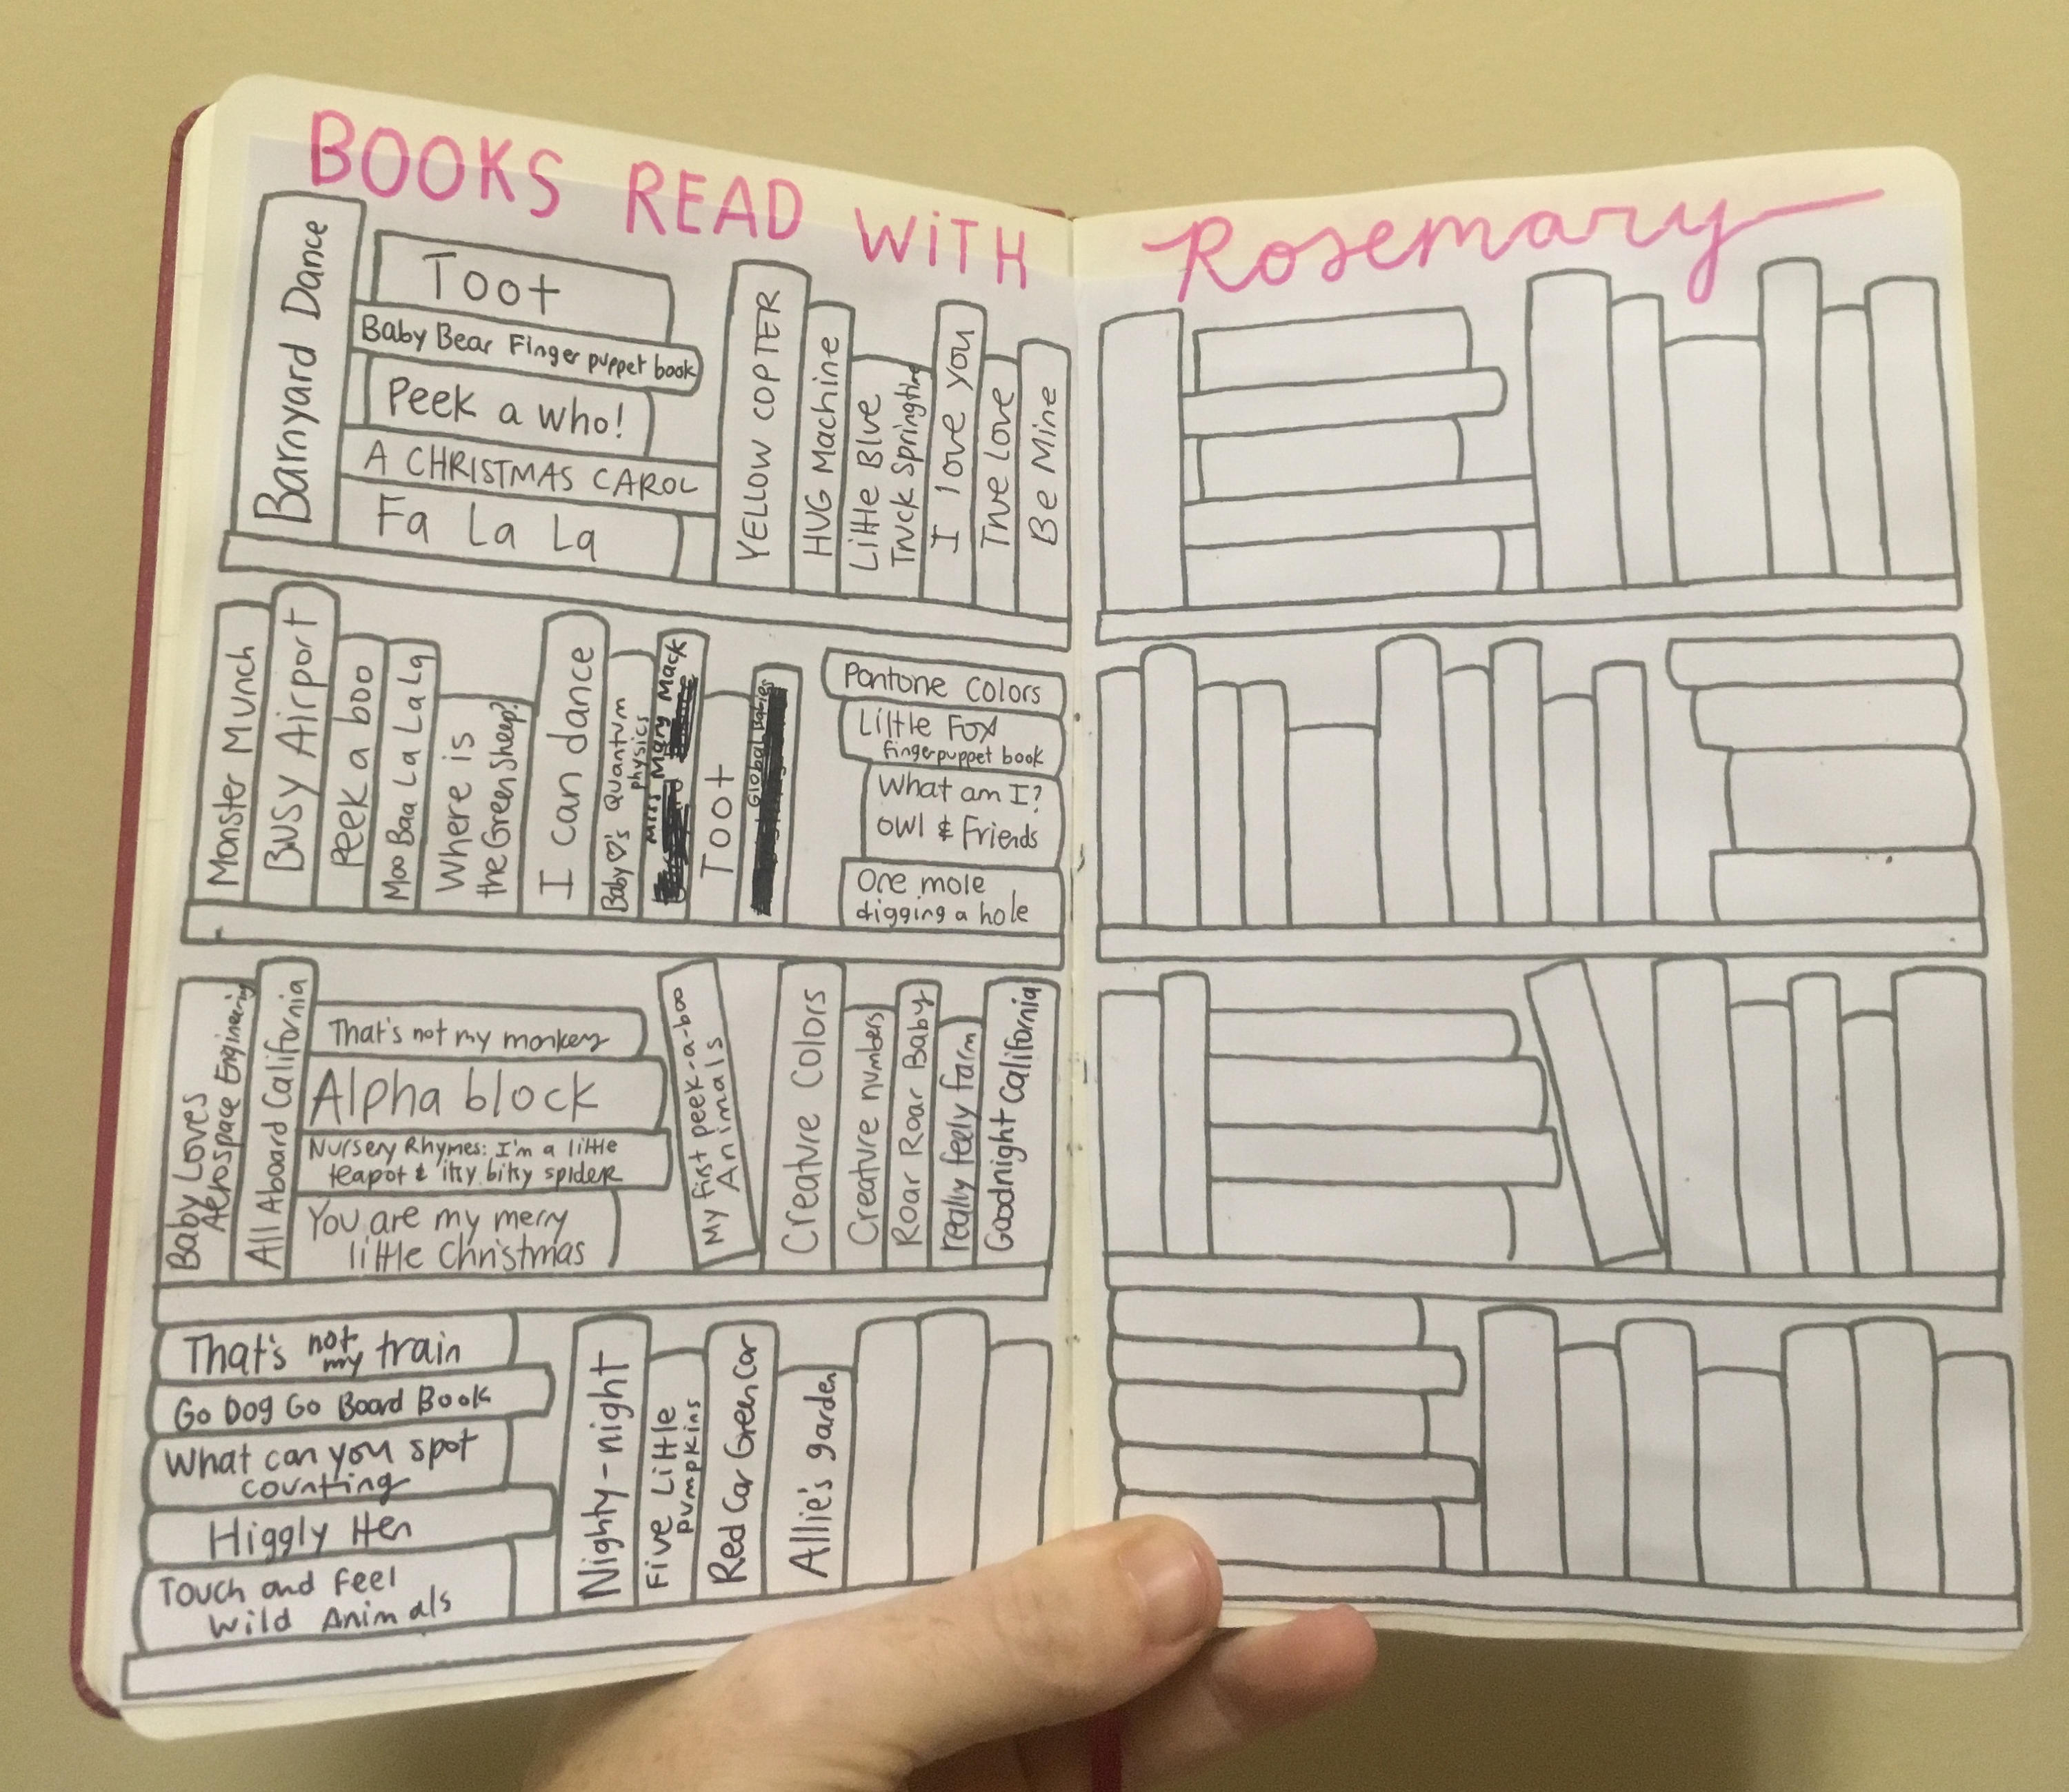 BOOKS READ WiTH Rosemary
Barnyard Dance
Toot
Baby Bear Finger puppet book
Peek a who!
A CHRISTMAS CAROL
Fa La La
YELLOW COPTER
HUG Machine
Little Blue
Truck Springtime
I love you
True Love
Be Mine
Monster Munch
Busy Airport
Peek a boo
Moo Baa La La La
Where is
the Green Sheep?
I can dance
Baby ♡'s Quantum
physics
Miss Mary Mack
Toot
Global Babies
Pantone Colors
Little Fox
fingerpuppet book
What am I?
Owl & Friends
One mole
digging a hole
Baby Loves
Aerospace Engineering
All Aboard California
That's not my monkey
Alpha block
Nursery Rhymes: I'm a little
teapot & itsy bitsy spider
You are my merry
little Christmas
My first peek-a-boo
Animals
Creature Colors
Creature numbers
Roar Roar Baby
really feely farm
Goodnight California
That's not my train
Go Dog Go Board Book
What can you spot
counting
Higgly Hen
Touch and Feel
Wild Animals
Nighty-night
Five Little
pumpkins
Red Car Green Car
Allie's garden